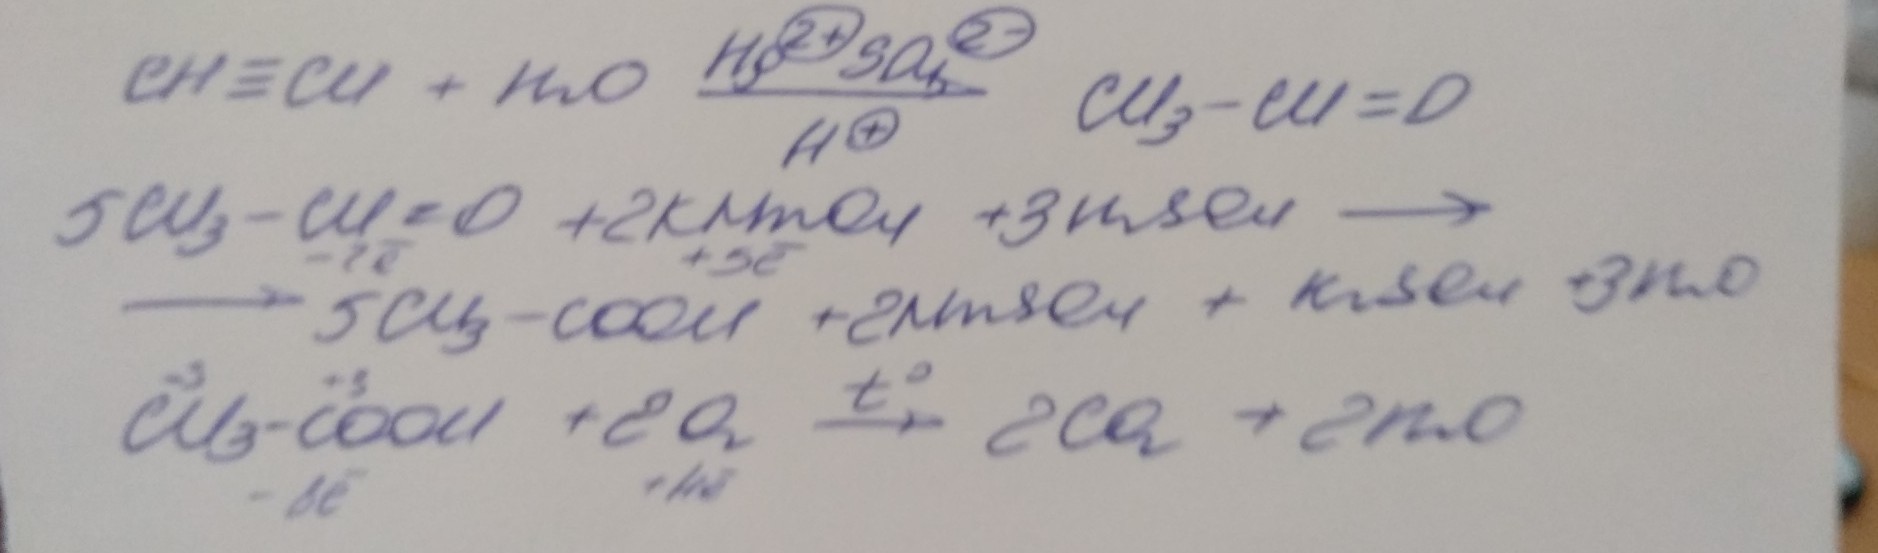 CH≡CH + H₂O Hg²⁺SO₄²⁻ / H⁺ CH₃-CH=O
5CH₃-CH=O + 2KMnO₄ + 3H₂SO₄ →
-2ē +5ē
→ 5CH₃-COOH + 2MnSO₄ + K₂SO₄ + 3H₂O
-3 +3
CH₃-COOH + 2O₂ t° → 2CO₂ + 2H₂O
-8ē +4ē